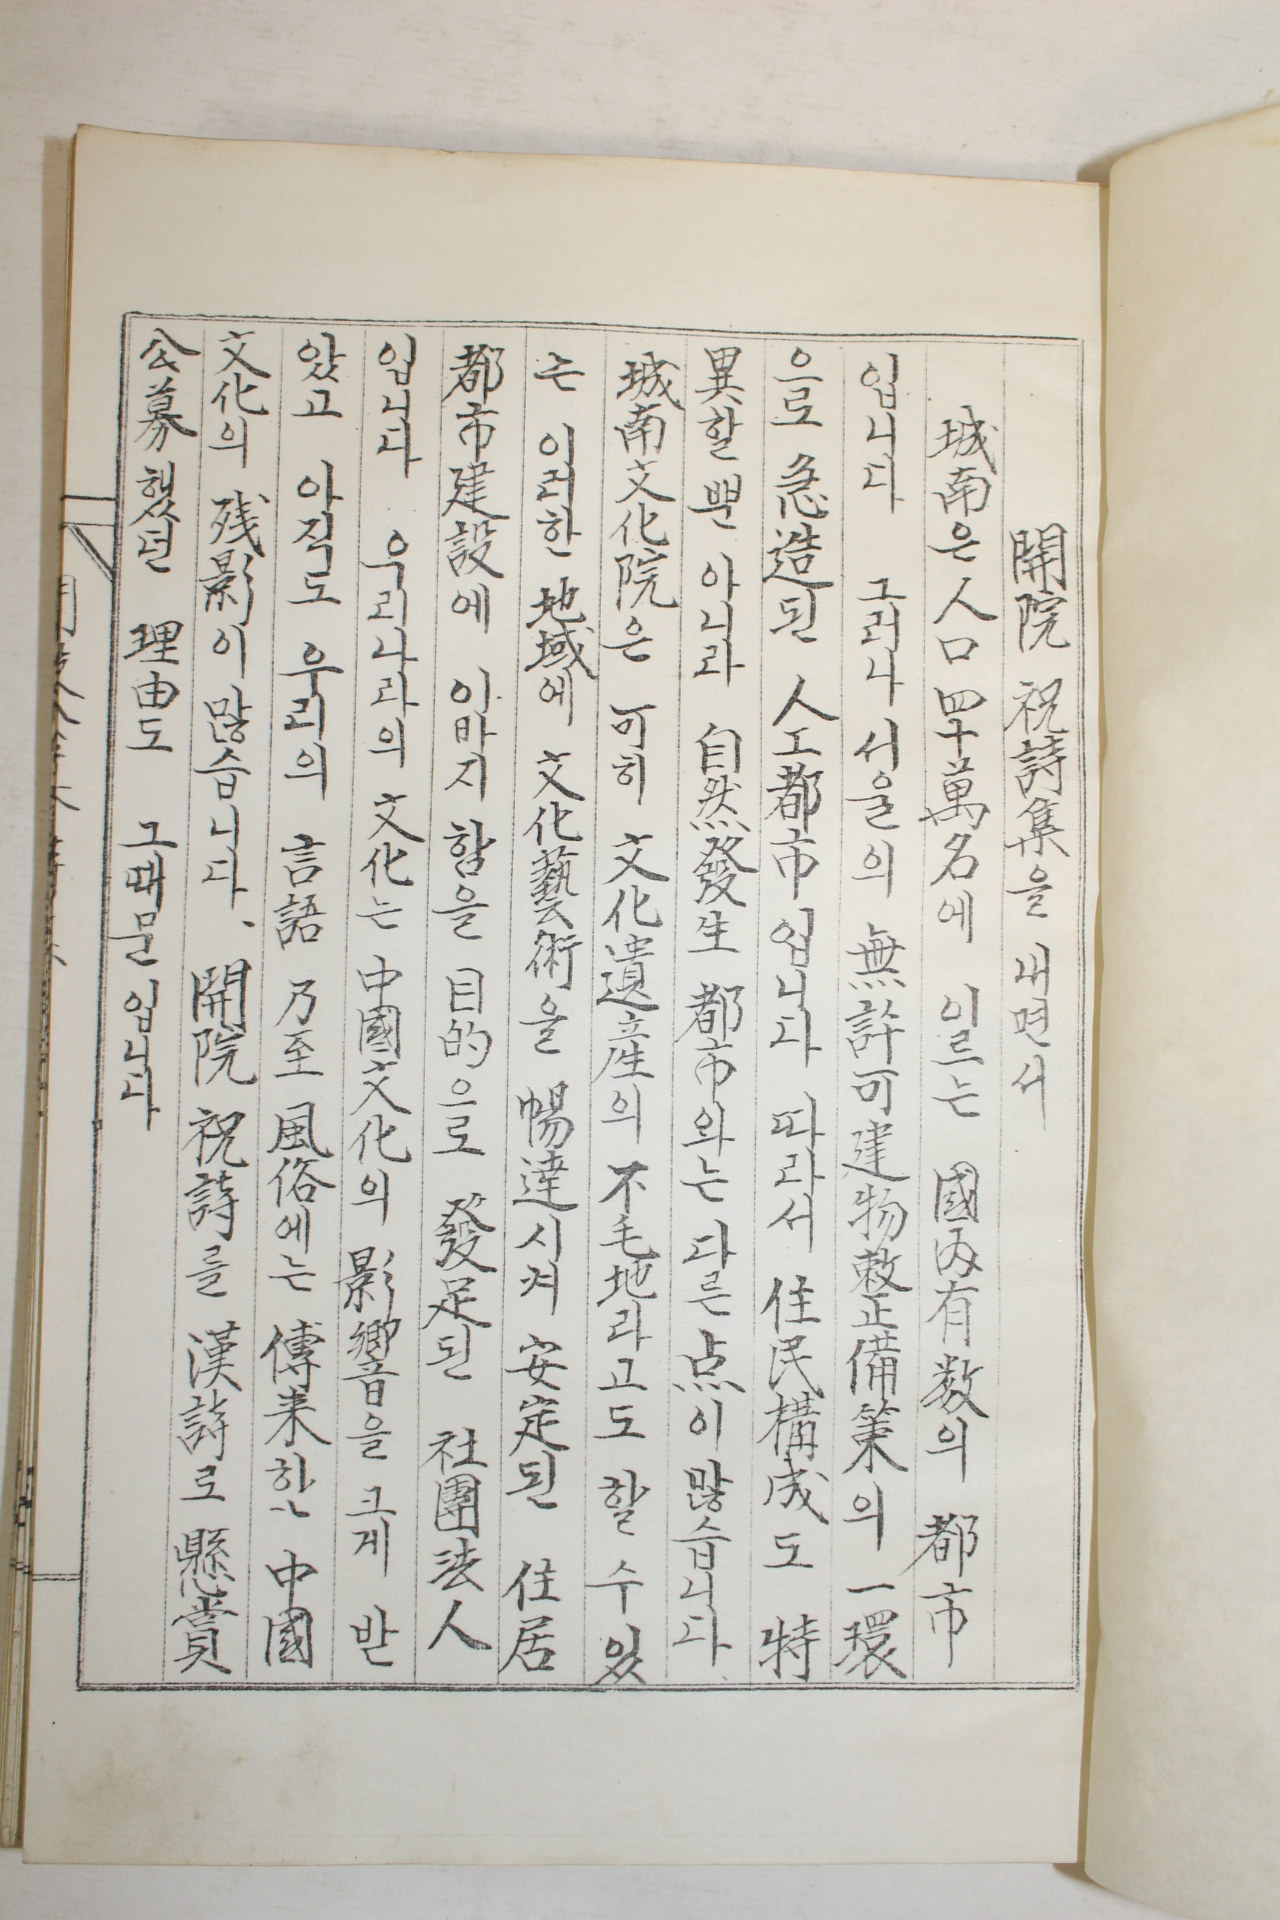 開院 祝詩集을 내면서
城南은 人口 四十萬名에 이르는 國內有数의 都市
입니다 그러나 서울의 無許可建物整備策의 一環
으로 急造된 人工都市입니다 따라서 住民構成도 特
異할 뿐 아니라 自然發生 都市와는 다른 点이 많습니다.
城南文化院은 可히 文化遺産의 不毛地라고도 할 수 있
는 이러한 地域에 文化藝術을 暢達시켜 安定된 住居
都市建設에 이바지 함을 目的으로 發足된 社團法人
입니다 우리나라의 文化는 中國文化의 影響을 크게 받
았고 아직도 우리의 言語 乃至 風俗에는 傳来한 中國
文化의 残影이 많습니다. 開院 祝詩를 漢詩로 懸賞
公募했던 理由도 그때문입니다